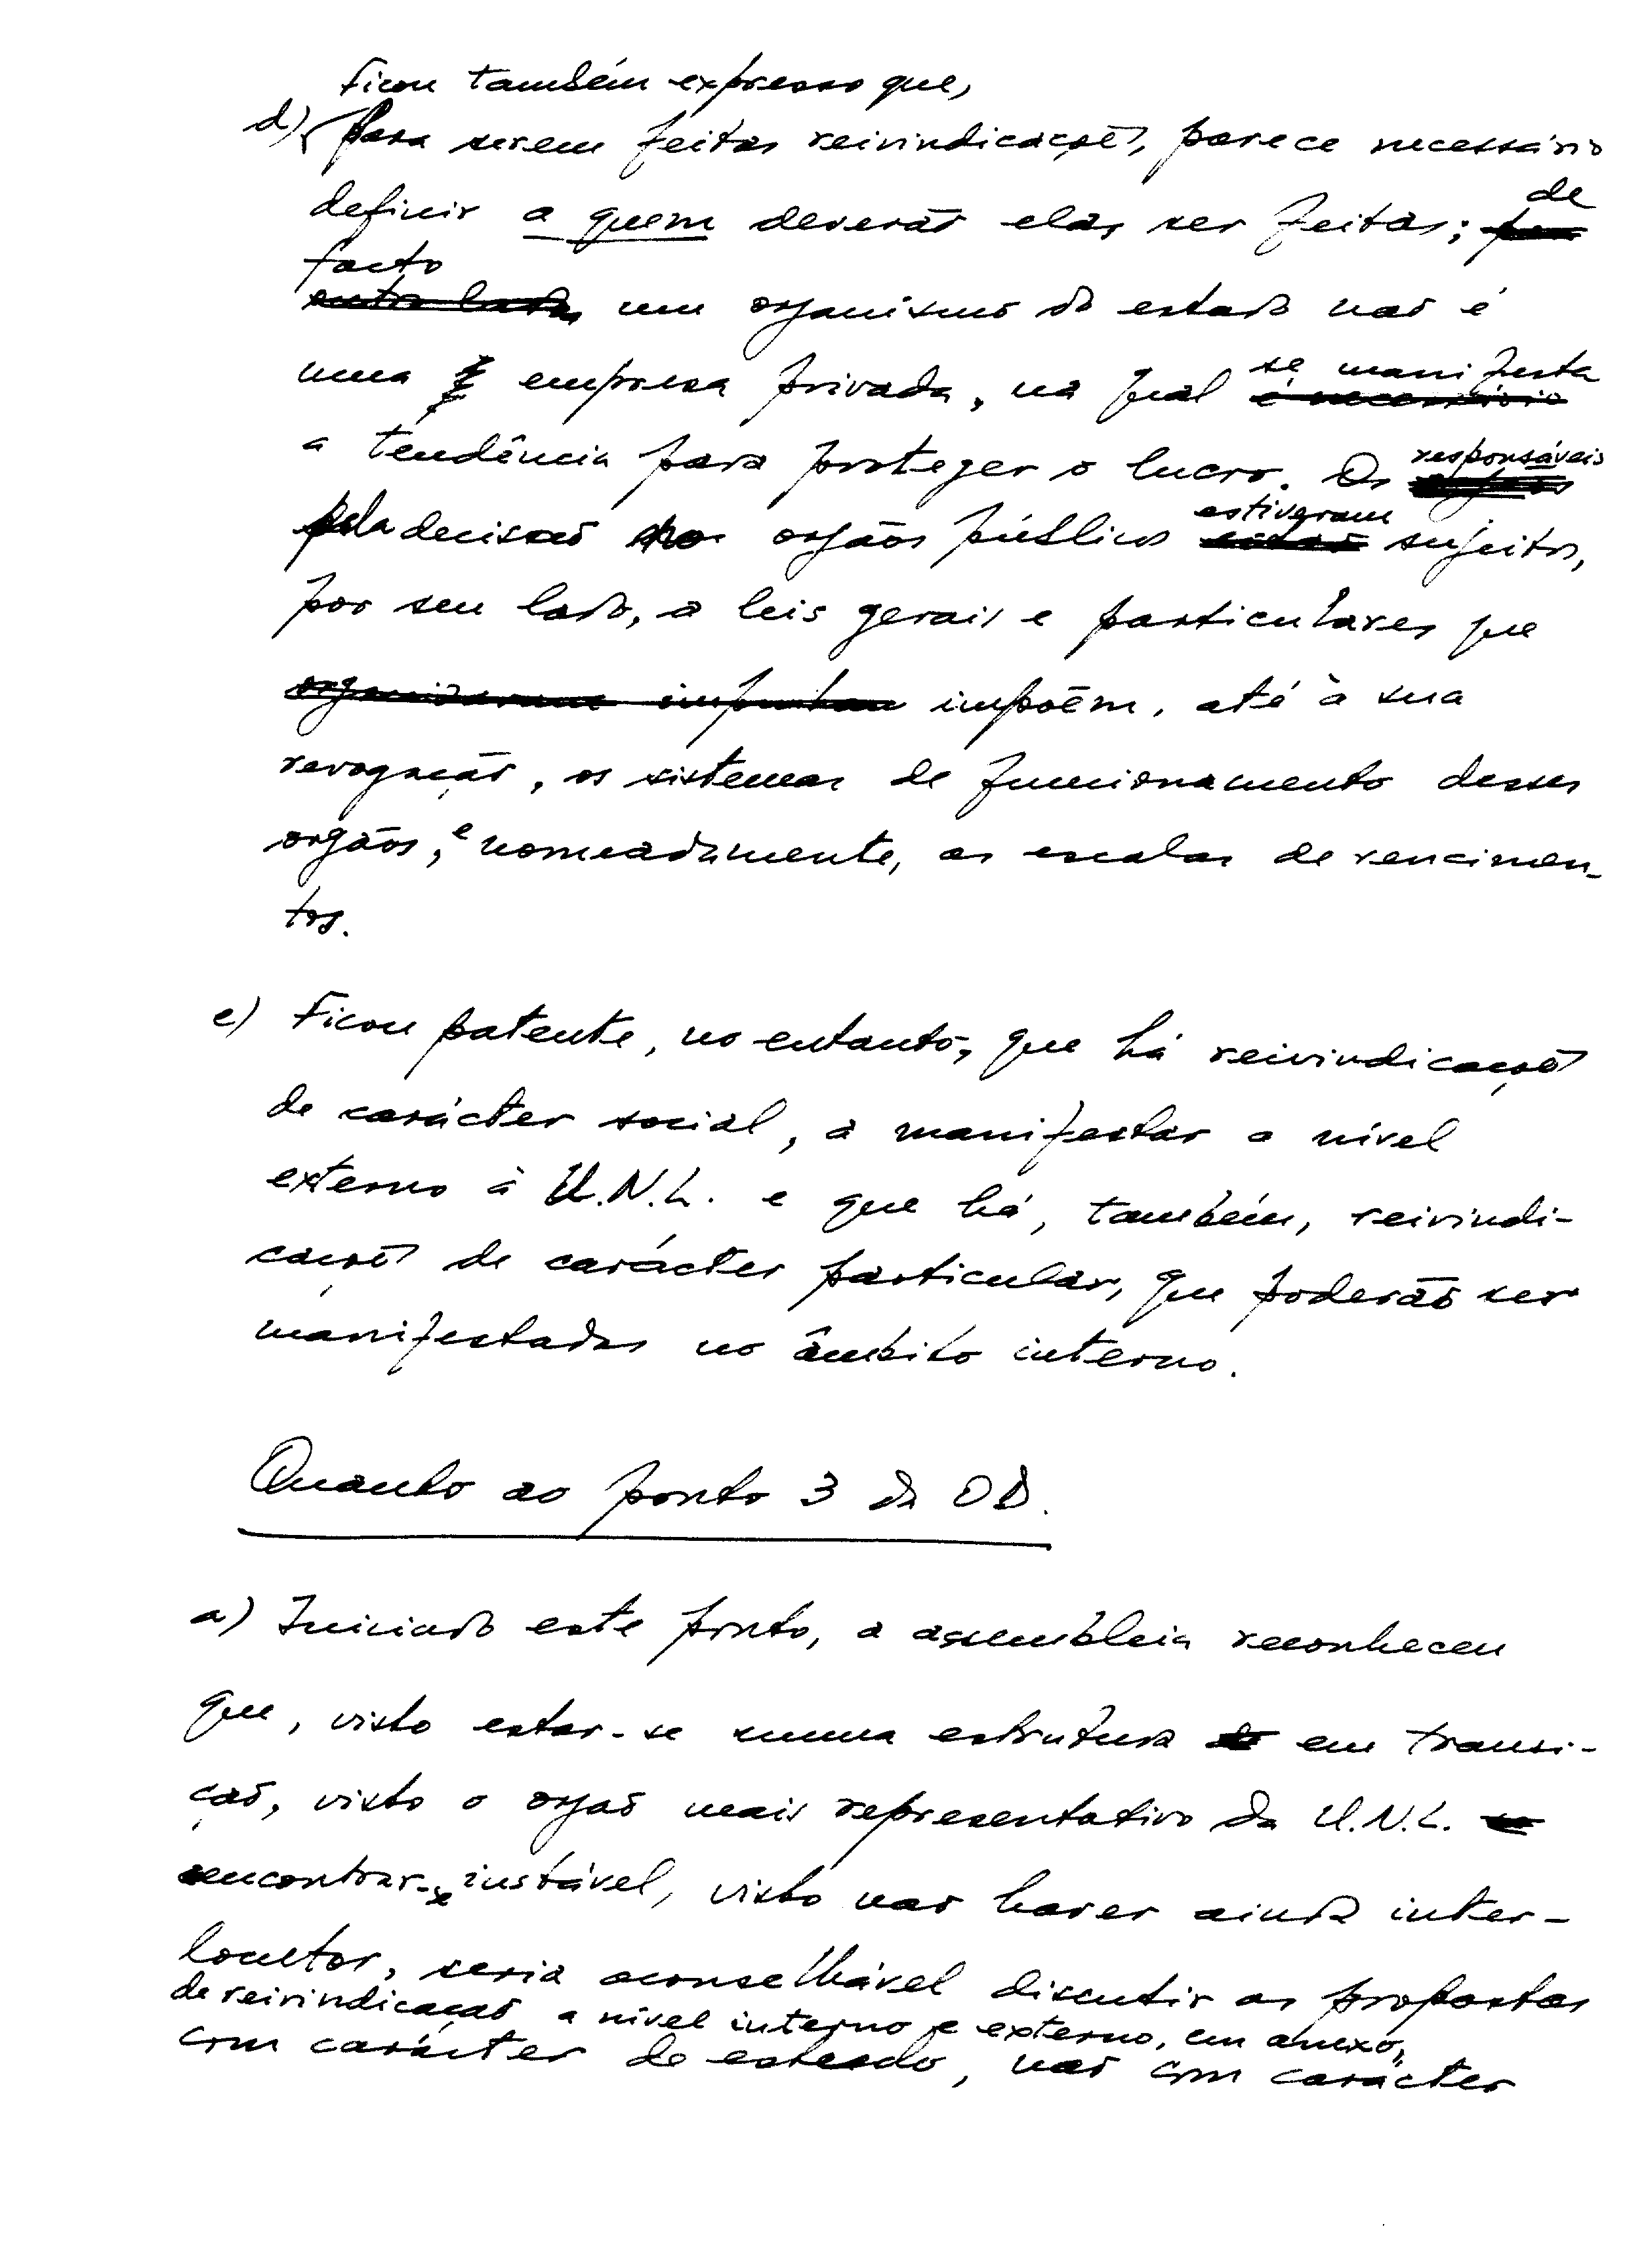 Ficou também expresso que,
d) para serem feitas reivindicações, parece necessário
definir a quem deverão elas ser feitas; de
facto
um organismo do estado não é
uma empresa privada, na qual se manifesta
a tendência para proteger o lucro. Os responsáveis
pela decisão nos orgãos públicos estiveram sujeitos,
por seu lado, a leis gerais e particulares que
impõem, até à sua
revogação, os sistemas de funcionamento desses
orgãos, e nomeadamente, as escalas de vencimen-
tos.
e) Ficou patente, no entanto, que há reivindicações
de carácter social, a manifestar a nível
externo à U.N.L. e que há, também, reivindi-
cações de carácter particular, que poderão ser
manifestadas no âmbito interno.
Quanto ao ponto 3 da OD.
a) Iniciado este ponto, a assembleia reconheceu
que, visto estar-se numa estrutura em transi-
ção, visto o orgão mais representativo da U.N.L.
encontrar-se instável, visto não haver ainda inter-
locutor, seria aconselhável discutir as propostas
de reivindicação a nível interno e externo, em anexo,
com carácter de estudo, não com carácter